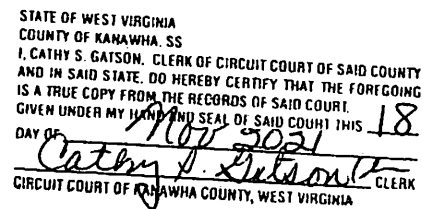 STATE OF WEST VIRGINIA
COUNTY OF KANAWHA, SS
I, CATHY S. GATSON, CLERK OF CIRCUIT COURT OF SAID COUNTY
AND IN SAID STATE, DO HEREBY CERTIFY THAT THE FOREGOING
IS A TRUE COPY FROM THE RECORDS OF SAID COURT.
GIVEN UNDER MY HAND AND SEAL OF SAID COURT THIS 18
DAY OF Nov 2021
Cathy S. Gatson CLERK
CIRCUIT COURT OF KANAWHA COUNTY, WEST VIRGINIA